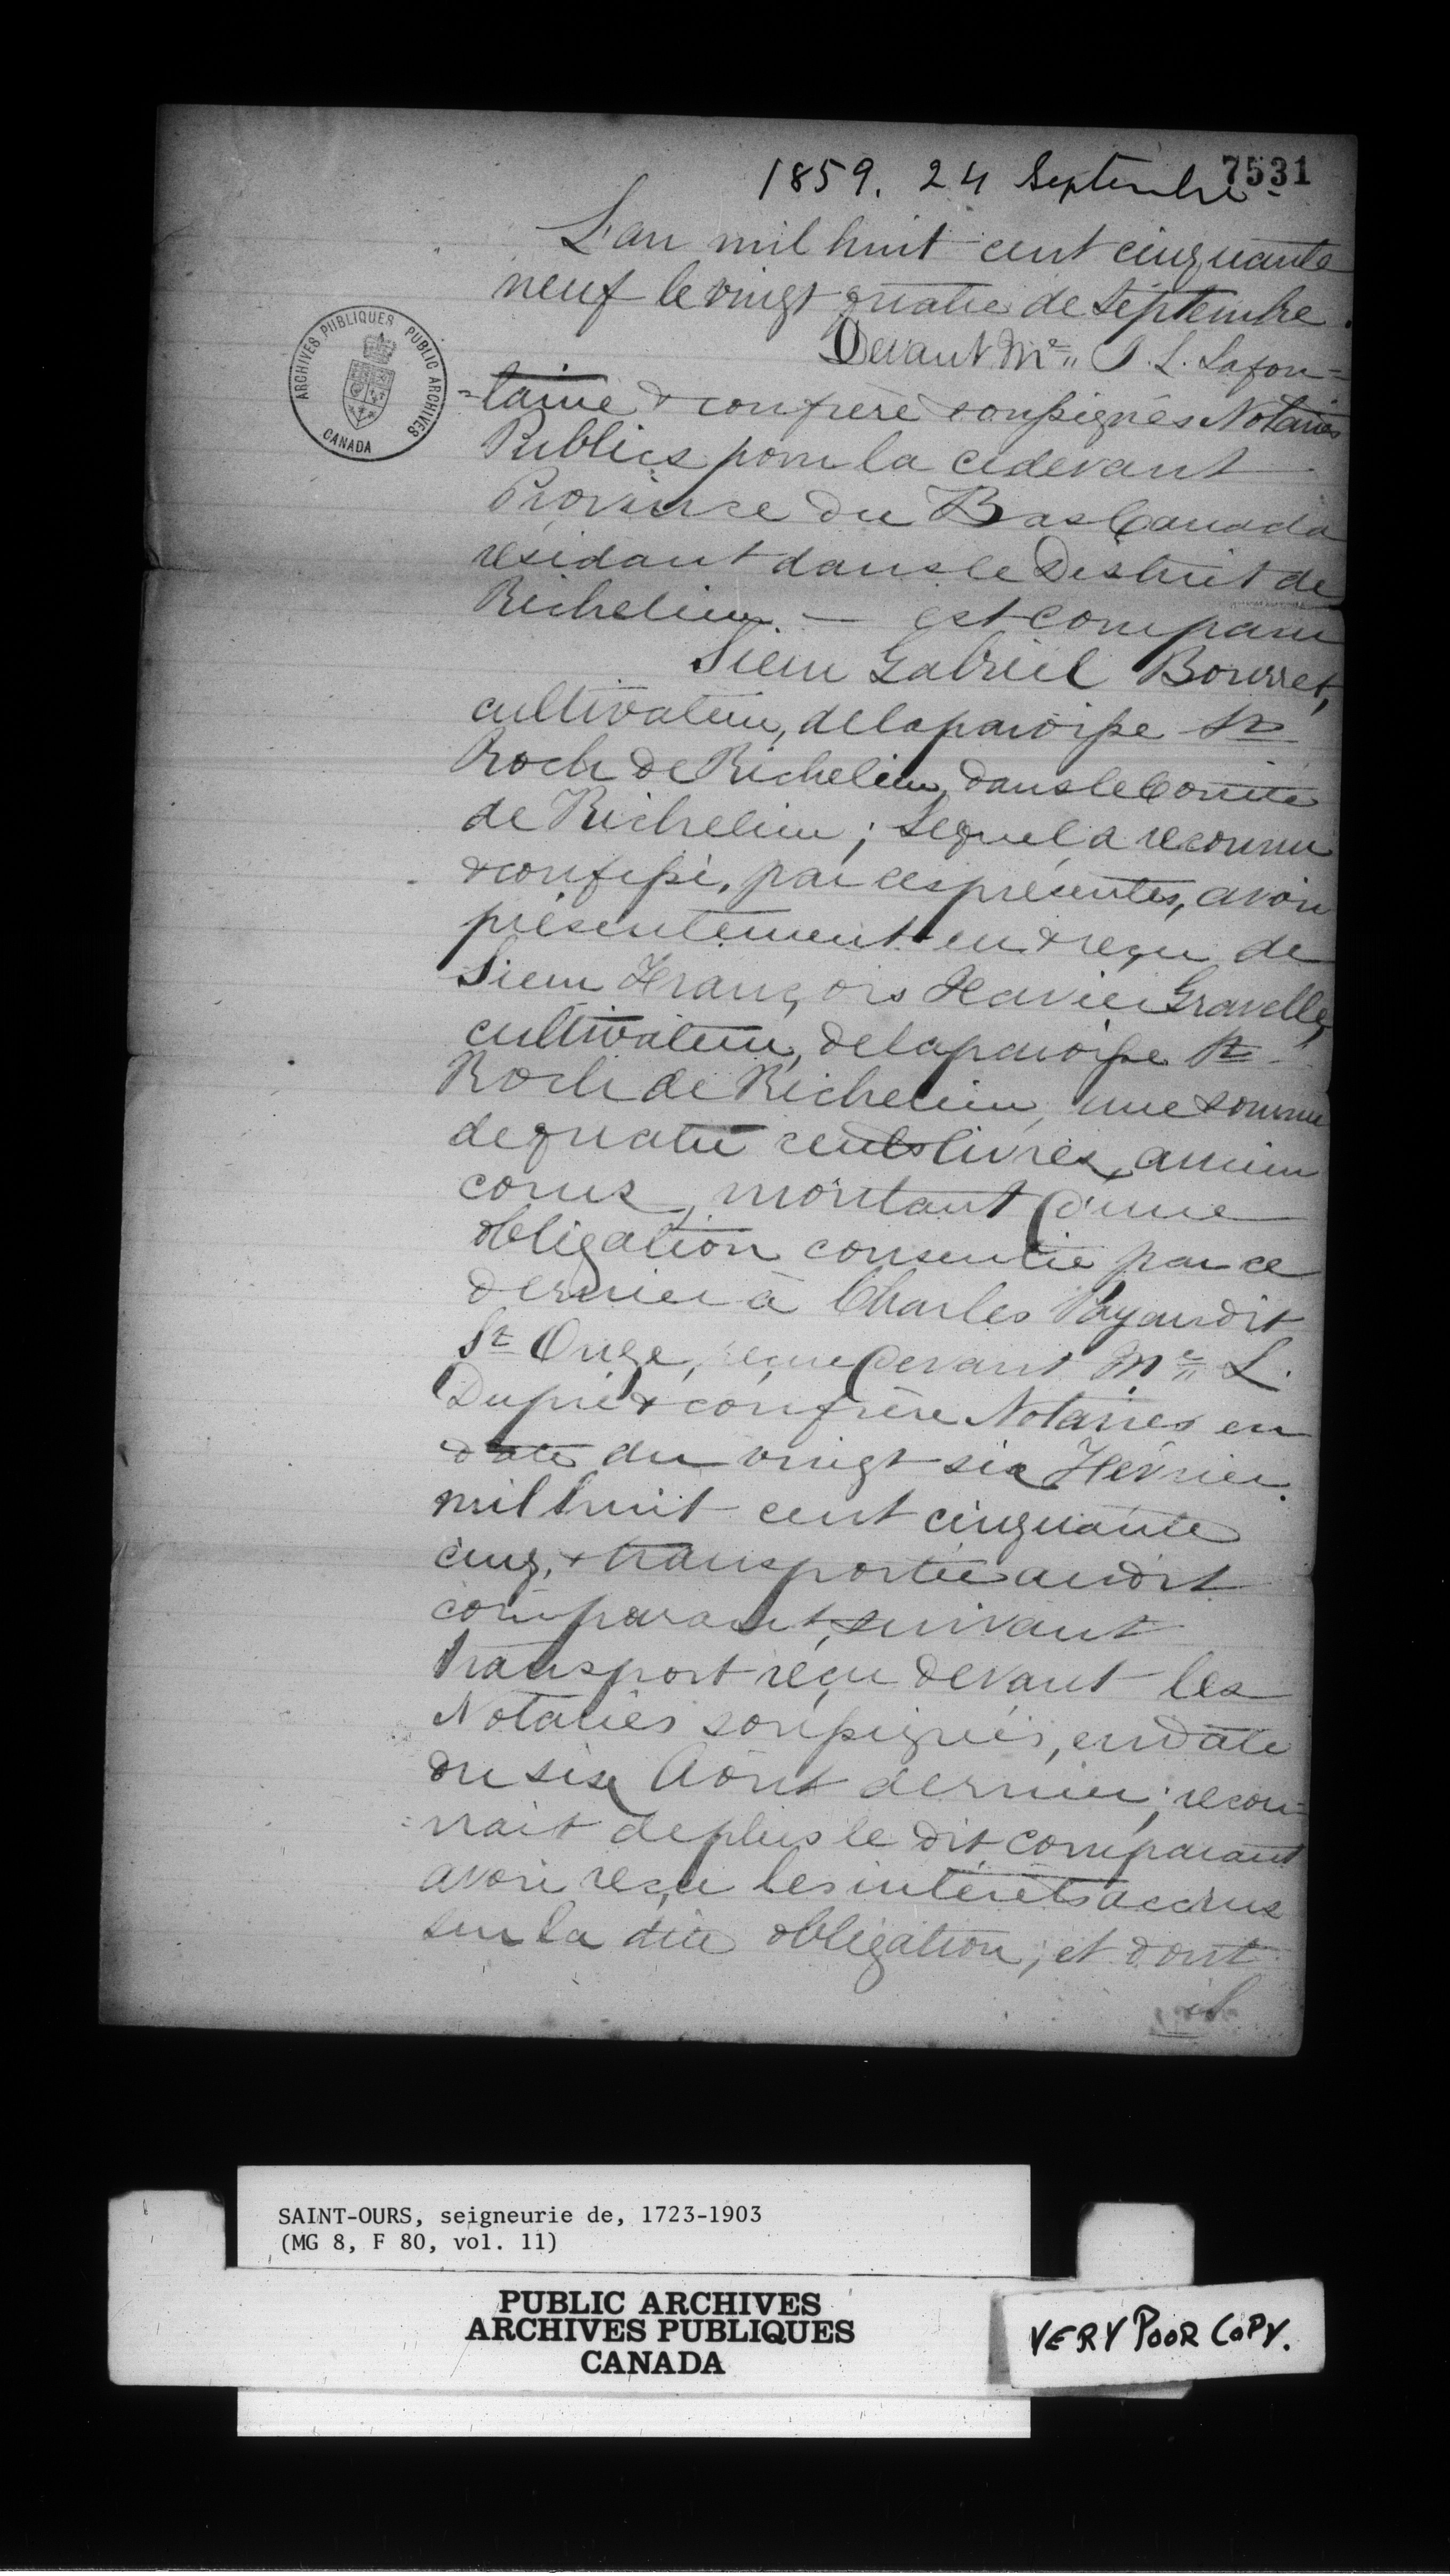 7531
1859. 24 Septembre
L'an mil huit cent cinquante
neuf le vingt quatre de Septembre.
Devant Mre J. L. Lafon=
=taine & confrère soussignés Notaires
Publics pour la cidevant
Province du Bas Canada
résidant dans le District de
Richelieu. — est comparu
Sieur Gabriel Bourret,
cultivateur, de la paroisse St
Roch de Richelieu, dans le Comté
de Richelieu; lequel a reconnu
& confessé, par ces présentes, avoir
présentement eu & reçu de
Sieur François Xavier Gravelle,
cultivateur, de la paroisse St
Roch de Richelieu, une somme
de quatre cents livres, ancien
cours, montant d'une
obligation consentie par ce
dernier à Charles Payan dit
St Onge, reçue devant Mre L.
Dupré & confrère Notaires en
date du vingt six Février
mil huit cent cinquante
cinq, & transportée audit
comparant, suivant
transport reçu devant les
Notaires soussignés, en date
du six Août dernier; recon=
=nait de plus le dit comparant
avoir reçu les intérêts accrus
sur la dite obligation; et dont
il
ARCHIVES PUBLIQUES PUBLIC ARCHIVES
CANADA
SAINT-OURS, seigneurie de, 1723-1903
(MG 8, F 80, vol. 11)
PUBLIC ARCHIVES
ARCHIVES PUBLIQUES
CANADA
VERY POOR COPY.